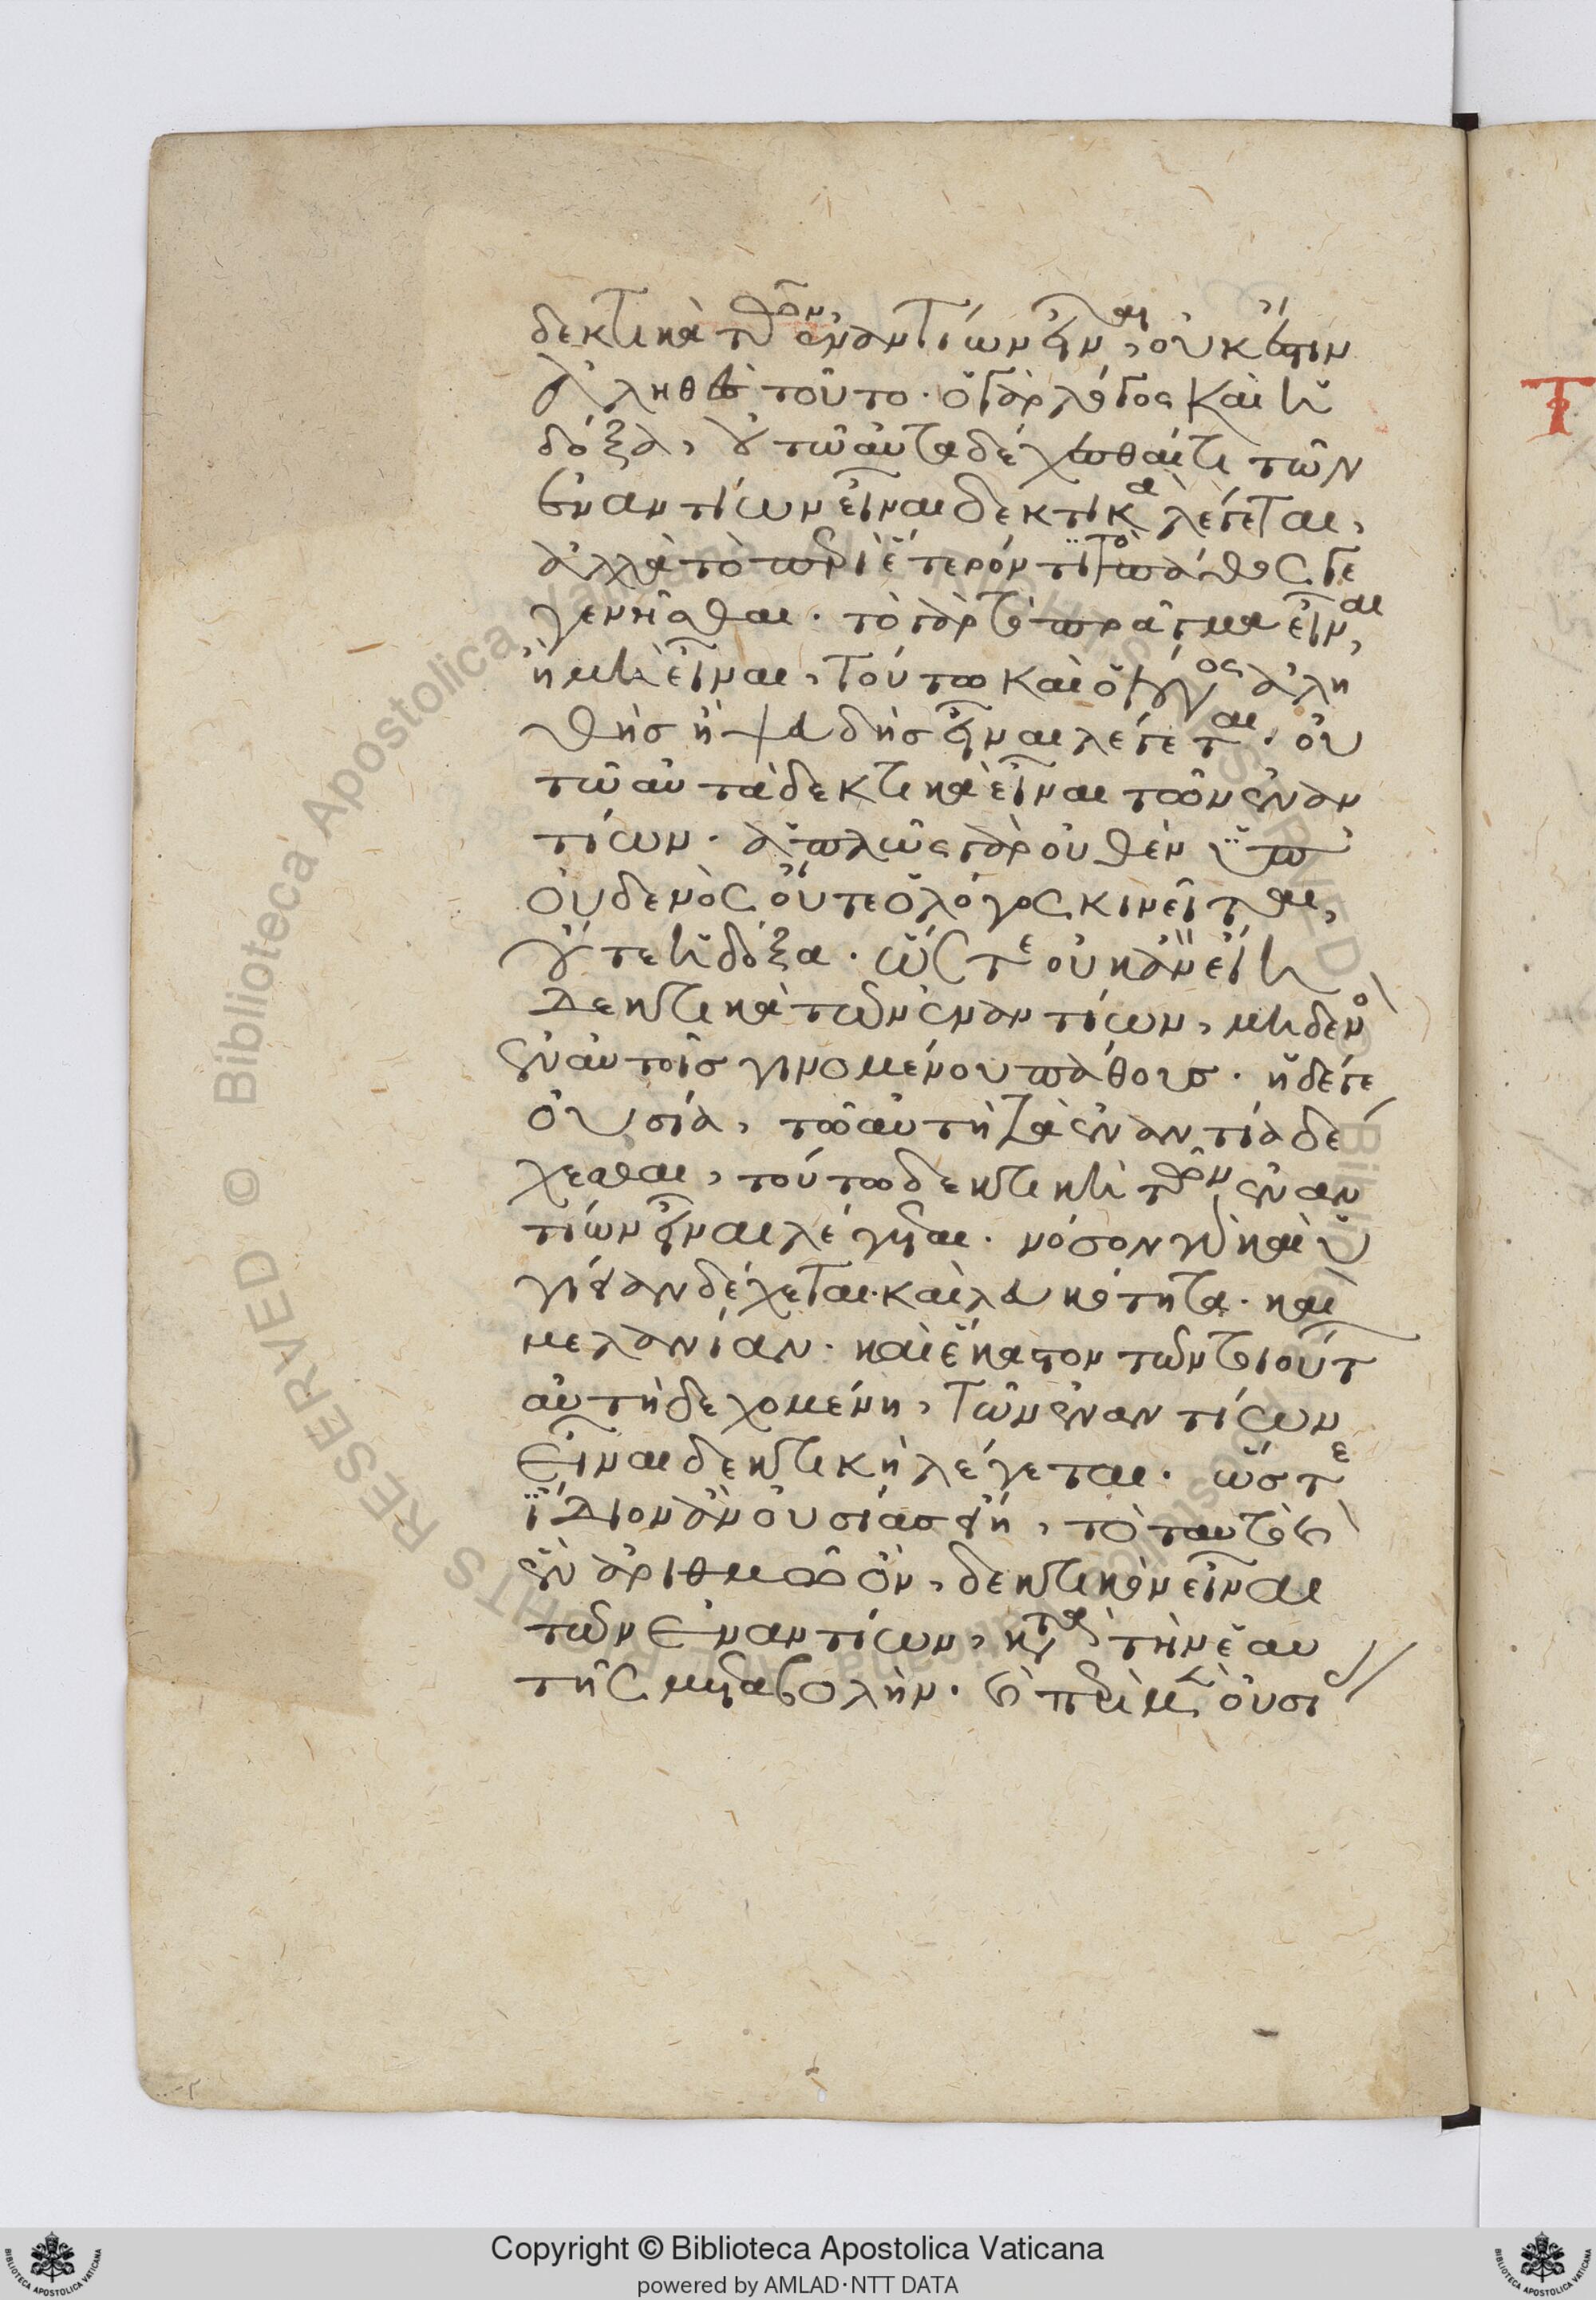 δεκτικὰ τῶν ἐναντίων εἶναι, οὐκ ἔστιν
ἀληθὲς τοῦτο· ὁ γὰρ λόγος καὶ ἡ
δόξα, οὐ τῶ αὐτὰ δέχεσθαί τι τῶν
ἐναντίων εἶναι δεκτικὰ λέγεται,
ἀλλὰ τὸ περὶ ἕτερόν τι τὸ πάθος γε
γενῆσθαι· τὸ γὰρ τὸ πρᾶγμα εἶναι,
ἢ μὴ εἶναι, τούτω καὶ ὁ λόγος ἀλη
θὴς ἢ ψευδὴς εἶναι λέγεται· οὐ
τῶ αὐτὰ δεκτικὰ εἶναι τῶν ἐναν
τίων· ἁπλῶς γὰρ οὐθὲν ὑπ'
οὐδενὸς οὔτε ὁ λόγος κινεῖται,
οὔτε ἡ δόξα· ὥστε οὐκ ἂν εἴη
δεκτικὰ τῶν ἐναντίων, μηδενὸς
ἐν αὐτοῖς γινομένου πάθους· ἡ δέ γε
οὐσία, τῶ αὐτὴ τὰ ἐναντία δέ
χεσθαι, τούτω δεκτικὴ τῶν ἐναν
τίων εἶναι λέγεται· νόσον γὰρ καὶ ὑ
γίειαν δέχεται· καὶ λευκότητα· καὶ
μελανίαν· καὶ ἕκαστον τῶν τοιούτ
αὐτὴ δεχομένη, τῶν ἐναντίων
εἶναι δεκτικὴ λέγεται· ὥστε
ἴδιον ἂν οὐσίας εἴη, τὸ ταυτὸ κ
ἓν ἀριθμῶ ὂν, δεκτικὸν εἶναι
τῶν ἐναντίων, κατὰ τὴν ἑαυ
τῆς μεταβολὴν· κ περὶ μὲν οὐσί
Copyright © Biblioteca Apostolica Vaticana
powered by AMLAD·NTT DATA